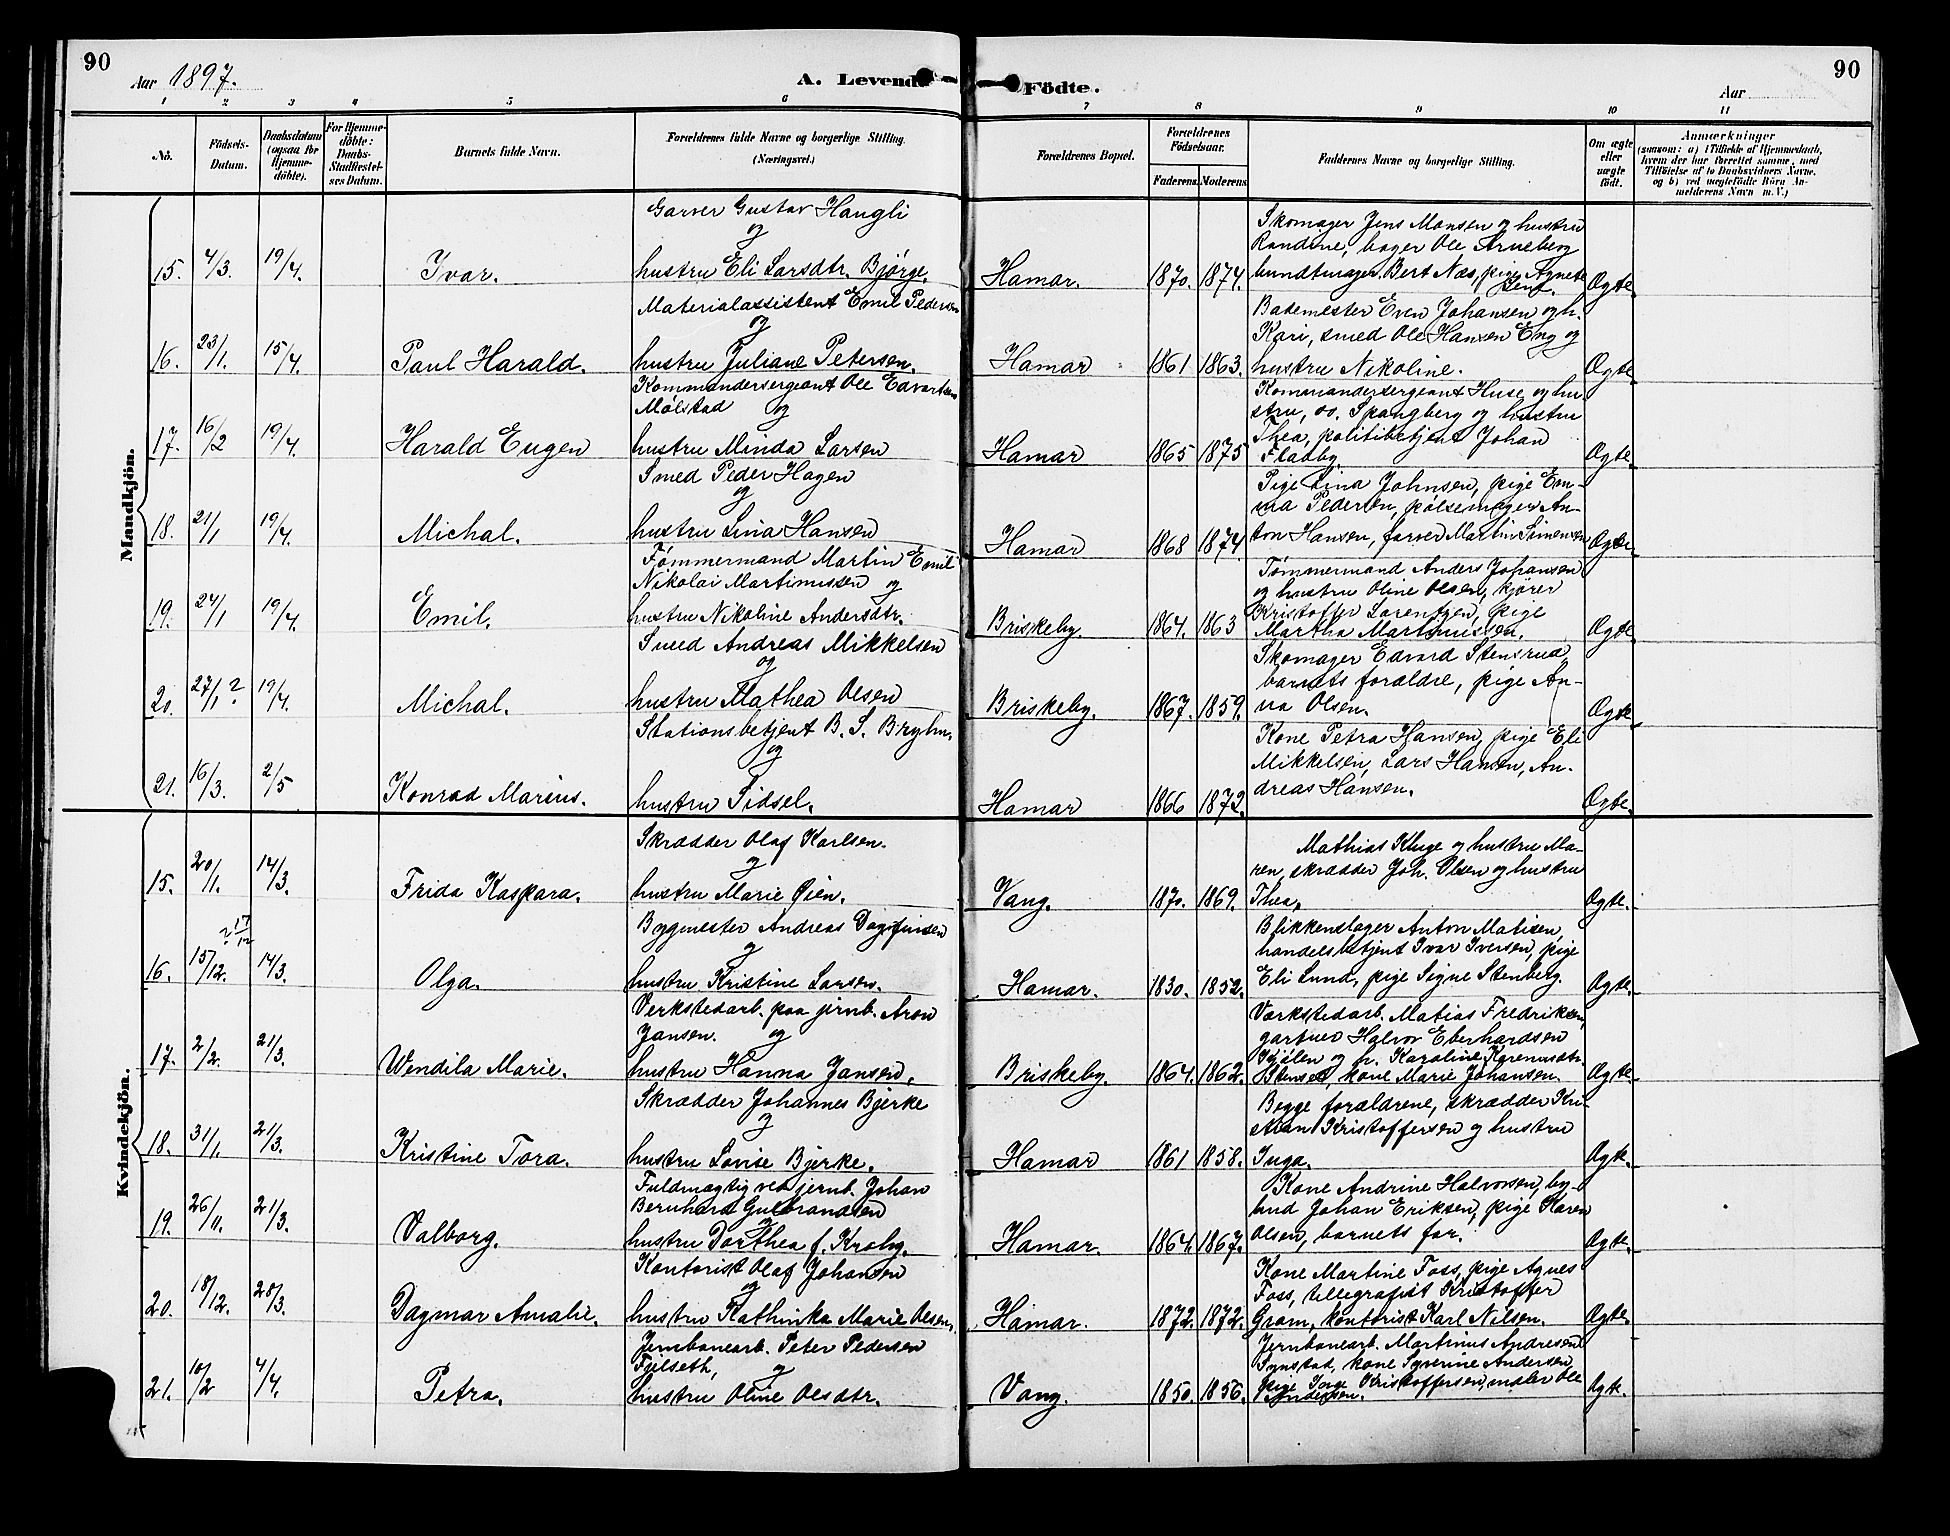 90
Aar 1897.
A. Levende
Födte.
Aar
90
1 2 3 4 5 6 7 8 9 10 11
No.
Födsels-
Datum.
Daabsdatum
(ogsaa for
Hjemme-
döbte).
For Hjemme-
döbte:
Daabs-
Stadfæstel-
ses Datum.
Barnets fulde Navn.
Forældrenes fulde Navne og borgerlige Stilling.
(Næringsvei.)
Forældrenes Bopæl.
Forældrenes
Födselsaar.
Faderens. Moderens.
Faddernes Navne og borgerlige Stilling.
Om ægte
eller
uægte
födt.
Anmærkninger
(saasom: a) i Tilfælde af Hjemmedaab,
hvem der har forrettet samme, med
Tilföielse af to Daabsvidners Navne.
og b) ved uægtefödte Börn An-
melderens Navn m. V.)
Mandkjön.
15. 4/3. 19/4. Ivar.
Garver Gustav Haugli
og
hustru Eli Larsdtr. Bjørge.
Hamar. 1870. 1874.
Skomager Jens Monsen og hustru
Randine, bager Ole Arneberg
bundtmager Bert Næs, pige Agnete
Ægte.
16. 23/1. 15/4. Paul Harald.
Materialassistent Emil Pedersen
og
hustru Juliane Petersen.
Hamar 1861 1863.
Bademester Even Johansen og h.
Kari, smed Ole Hansen Eng og
hustru Nikoline.
Ægte
17. 16/2 19/4. Harald Eugen
Kommandersergeant Ole Edvartsen
Mølstad og
hustru Minda Larsen
Hamar 1865 1875
Kommandersergeant Huse og hu-
stru, os. Spangberg og hustru
Thea, politibetjent Johan
Fladby.
Ægte.
18. 21/1 19/4. Michal.
Smed Peder Hagen
og
hustru Lina Hansen
Hamar 1868 1874
Pige Lina Johnsen, pige Em-
ma Pedersen, pølsemager An-
ton Hansen, farver Martin Simensen
Ægte.
19. 24/1 19/4. Emil.
Tømmermand Martin Emil
Nikolai Martinussen og
hustru Nikoline Andersdtr.
Briskeby. 1864. 1863
Tømmermand Anders Johansen
og hustru Oline Olsen, kjører
Kristoffer Lorentzen, pige
Martha Martinussen.
Ægte
20. 27/1 ? 19/4. Michal.
Smed Andreas Mikkelsen
og
hustru Mathea Olsen
Briskeby. 1867. 1859.
Skomager Edvard Stensrud
barnets forældre, pige An-
na Olsen.
Ægte
21. 16/3. 2/5 Konrad Marius.
Stationsbetjent B. S. Bryhn.
og
hustru Sidsel.
Hamar 1866 1872.
Kone Petra Hansen, pige Eli
Mikkelsen, Lars Hansen, An-
dreas Hansen.
Ægte.
Kvindekjön.
15. 20/1. 14/3. Frida Kaspara.
Skrædder Olaf Karlsen.
og
hustru Marie Øien.
Vang. 1870. 1869.
Mathias Kluge og hustru Ma-
ren, skrædder Joh. Olsen og hustru
Thea.
Ægte.
16. 15/12. ? 17/12 14/3. Olga.
Bygmester Andreas Dagfinsen
og
hustru Kristine Larsen.
Hamar. 1830. 1852.
Blikkenslager Anton Matisen,
handelsbetjent Ivar Iversen, pige
Eli Lund, pige Signe Stenberg.
Ægte.
17. 2/2. 21/3. Wendila Marie.
Verkstedarb. paa jernb. Aron
Jansen. og
hustru Hanna Jansen.
Briskeby. 1864. 1862.
Værkstedarb. Matias Fredriksen,
gartner Halvor Eberhardsen
og h. Karoline
kone Marie Johansen.
Ægte.
18. 31/1. 21/3. Kristine Tora.
Skrædder Johannes Bjerke
og
hustru Lovise Bjerke.
Hamar 1861 1858.
Begge forældrene, skrædder Kri-
stian Kristoffersen og hustru
Inga.
Ægte.
19. 26/11. 21/3. Valborg.
Fuldmægtig ved jernb. Johan
Bernhard Gulbrandsen
og
hustru Dorthea f. Kroby.
Hamar. 1864. 1867.
Kone Andrine Halvorsen, by-
bud Johan Eriksen, pige Karen
Olsen, barnets far.
Ægte.
20. 18/12. 28/3. Dagmar Amalie.
Kontorist Olaf Johansen
og
hustru Kathinka Marie Olsen.
Hamar. 1872. 1872.
Kone Martine Foss, pige Agnes
Foss, tellegrafist Kristoffer
Gram, kontorist Karl Nilsen.
Ægte.
21. 10/2 4/4. Petra.
Jernbanearb. Peter Pedersen
Fjelseth, og
hustru Oline Olsdtr.
Vang. 1850. 1856.
Jernbanearb. Martinus Andresen
Synstad, kone Syverine Andersen,
pige Inge Kristoffersen, maler Ole
Andersen.
Ægte.